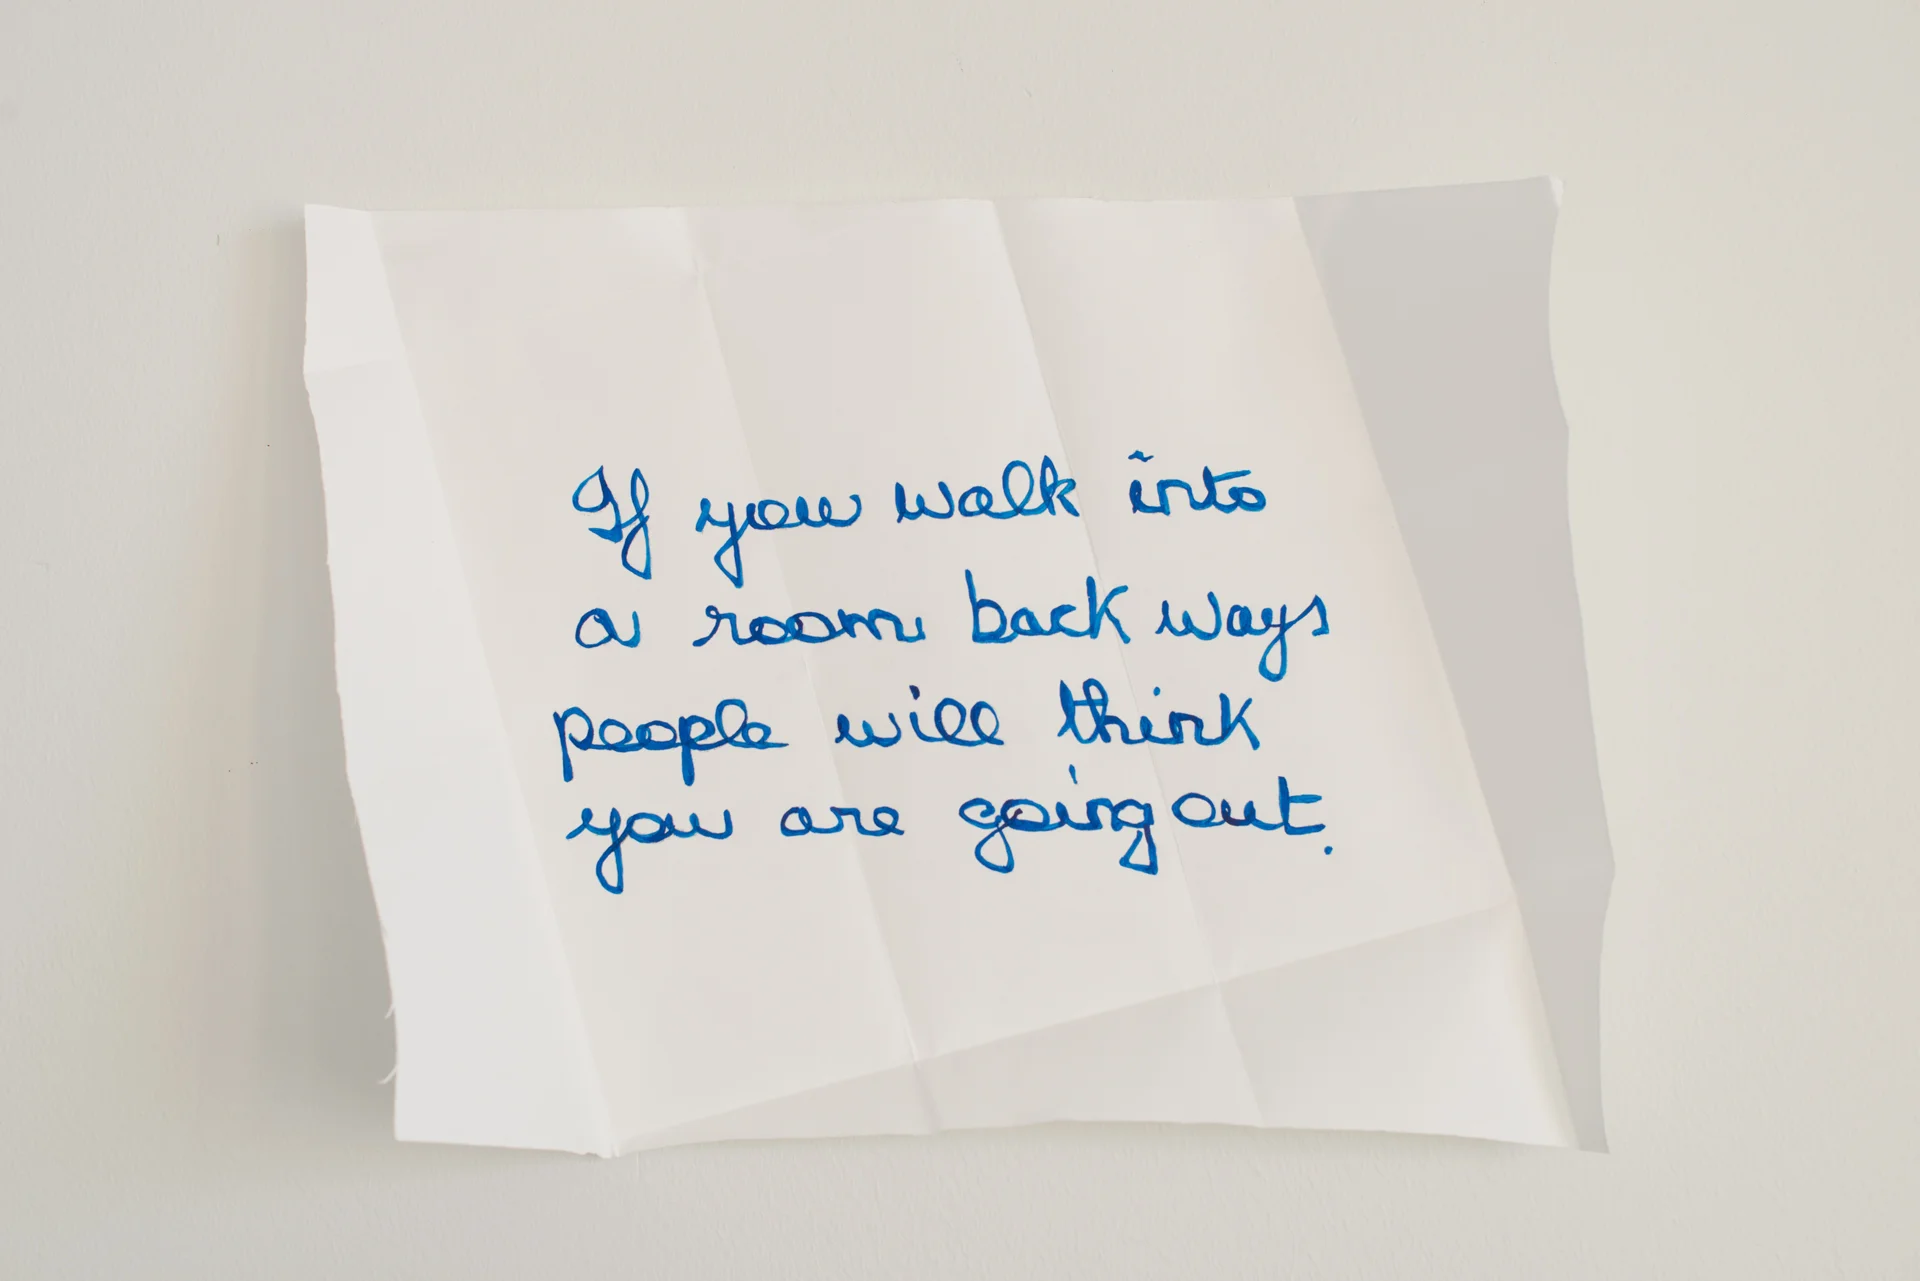 If you walk into
a room back ways
people will think
you are going out.